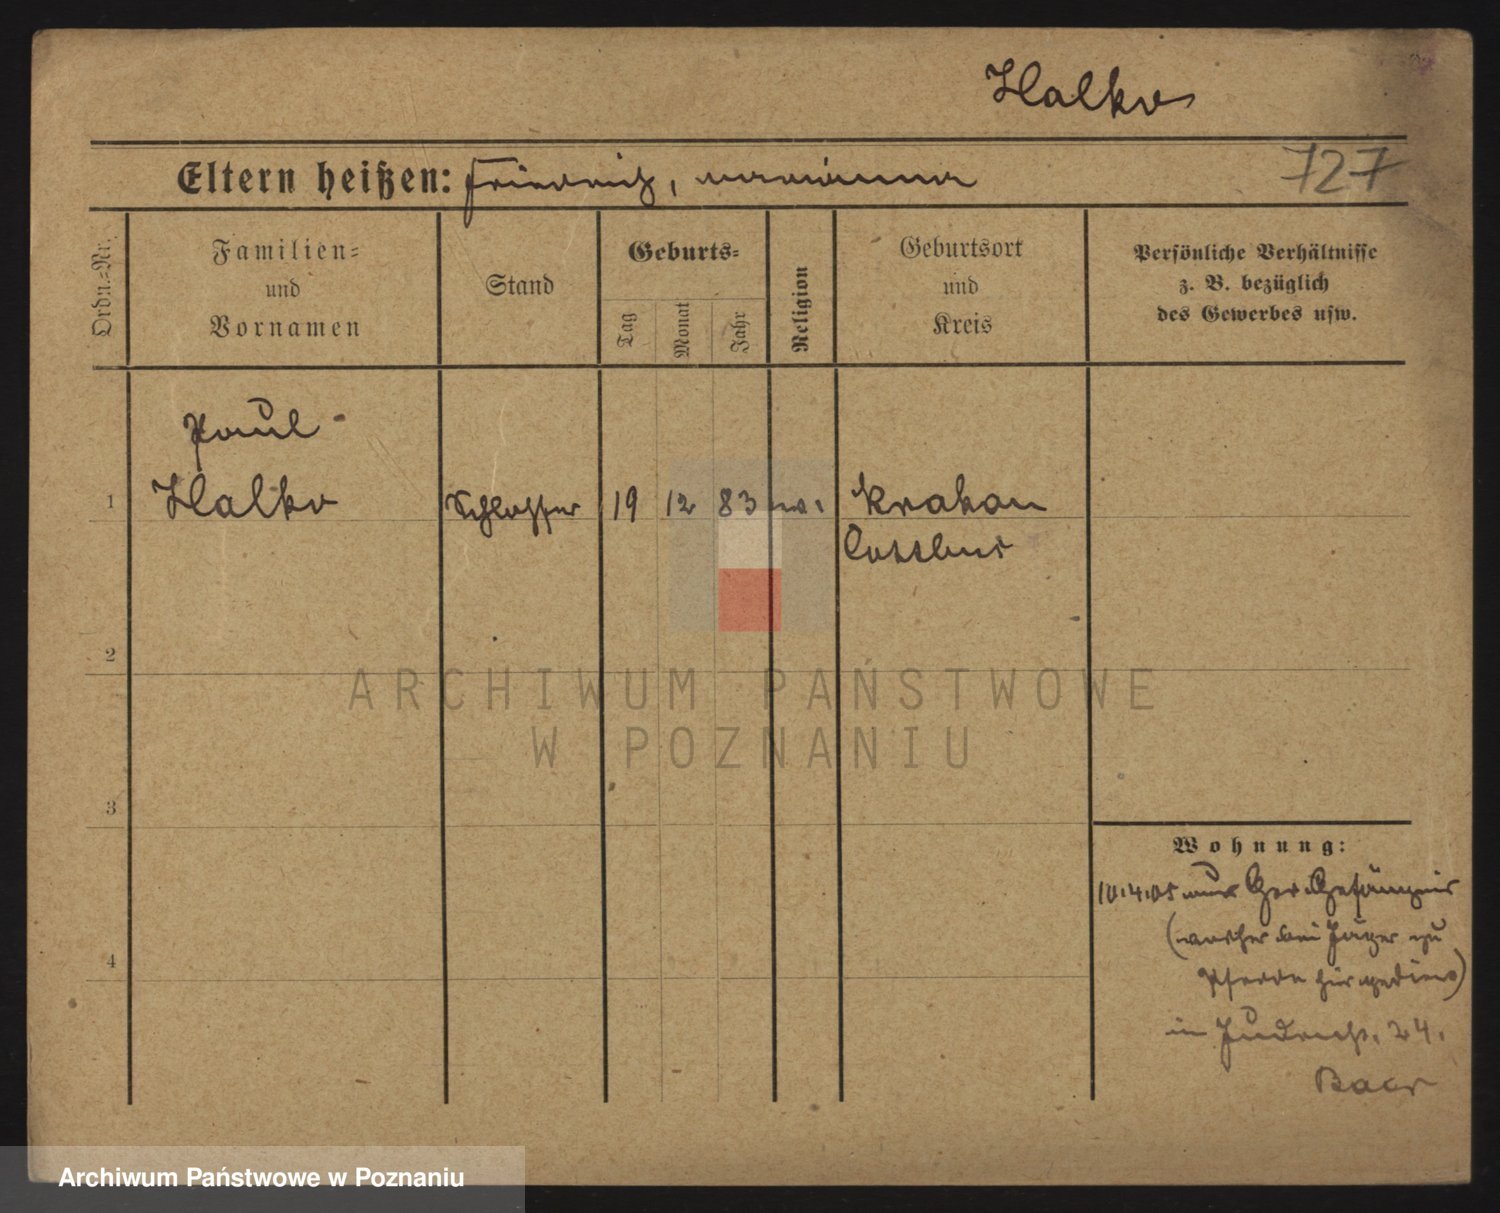 Halko
727
Eltern heißen: Friedrich,
Ordn.-Nr.
Familien-
und
Vornamen
Stand
Geburts-
Tag
Monat
Jahr
Religion
Geburtsort
und
Kreis
Persönliche Verhältnisse
z. B. bezüglich
des Gewerbes usw.
Paul
1 Halko Schlosser 19 12 83 Krakau
Cottbus
2
3
4
Wohnung:
10.4.05 Ger. Gefängnis
(vorher bei Jäger zu
Pferde hier gedient)
in 24.
Baer
ARCHIWUM PAŃSTWOWE
W POZNANIU
Archiwum Państwowe w Poznaniu